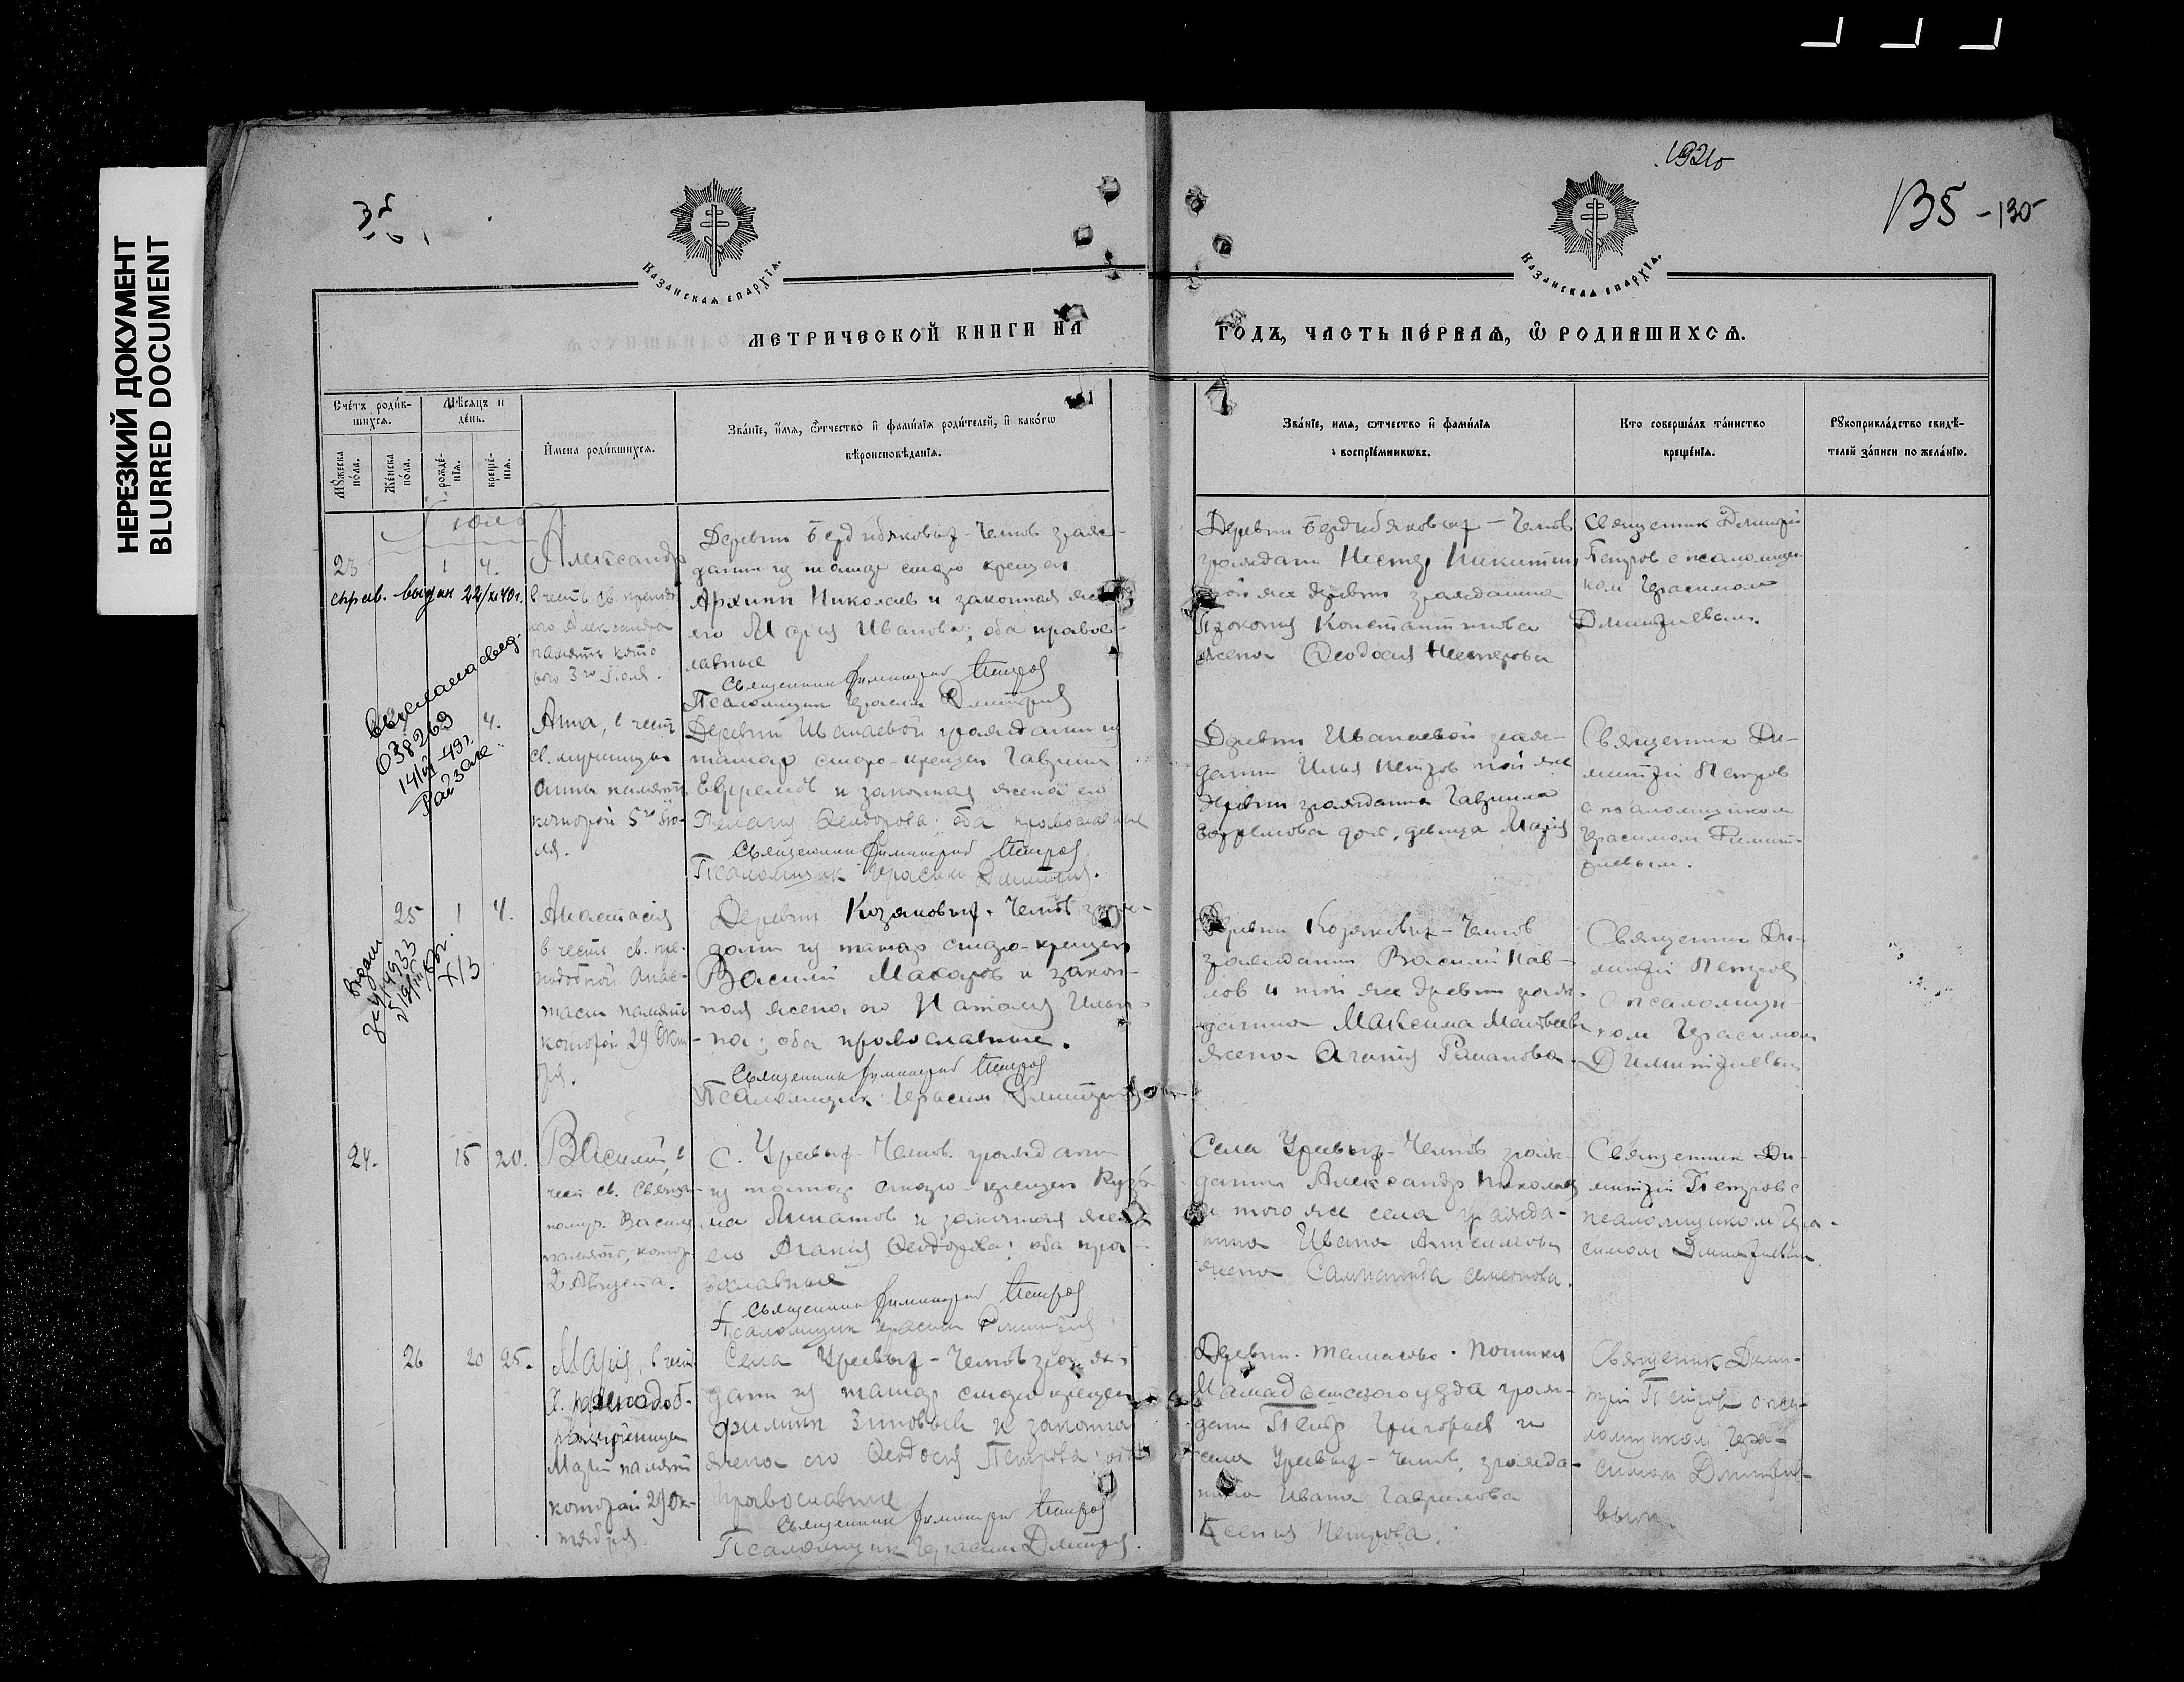 НЕРЕЗКИЙ ДОКУМЕНТ
BLURRED DOCUMENT
135 - 130
Казанская епархїѧ.
Казанская епархїѧ.
МЕТРИЧЕСКОЙ КНИГИ НА
ГОДЪ, ЧАСТЬ ПЕ́РВАЯ, Ѡ РОДИВШИХСЯ.
Счетъ роди́вшихся.
Мѣсяцъ и де́нь.
Мꙋжеска по́ла.
Же́нска по́ла.
рожде́нїѧ.
креще́нїѧ.
И҆мена роди́вшихся.
Зва́нїе, и҆́мѧ, ѻ҆́тчество и҆ фами́лїѧ роди́телей, и҆ како́гѡ
вѣроисповѣ́данїѧ.
Зва́нїе, имѧ, ѻтчество и҆ фами́лїѧ
воспрїе́мникѡвъ.
Кто соверша́лъ та́инство
креще́нїѧ.
Рꙋкоприкла́дство свидѣ́-
телей за́писи по жела́нїю.
Июль
23 1 4.
Александр
в честь св.
Александра
память кото
рого 3го Июля.
справ. выдан 22/XI 40г.
Деревни Бердибяковых-Челнов граж-
данин из татар старо крещен
Архипп Николаев и законная жена
его Мария Иванова; оба правос-
лавные
Священник Димитрий Петров
Псаломщик Герасим Дмитриев
Деревни Бердибяковых-Челнов
гражданин Нестер Никитин
той же деревни гражданина
Прокопия Константинова
жена Феодосия Нестерова
Священник Димитрий
Петров с псаломщи-
ком Герасимом
Димитриевым.
Выслана свид.
038269
14/VI-49г.
Райзагс
4.
Анна, в честь
св. мученицы
Анны память
которой 5го Ию-
ля.
Деревни Иванаевой гражданин из
татар старо-крещен Гавриил
Ефремов и законная жена его
Пелагия Феодорова; оба православные
Священник Димитрий Петров
Псаломщик Герасим Дмитриев.
Деревни Иванаевой граж-
данин Илья Петров той же
деревни гражданина Гавриила
Ефремова доч, девица Мария
Священник Ди-
митрий Петров
с псаломщиком
Герасимом Димит-
риевым.
25 1 4.
Анастасия
в честь св. пре-
подобной Анас-
тасии память
которой 29 Октяб
ря.
Деревни Козяковых-Челнов граж-
данин из татар старо-крещен
Василий Макаров и закон-
ная жена его Наталия Ильи-
на; оба православные.
Священник Димитрий Петров
Псаломщик Герасим Дмитриев
Деревни Козяковых-Челнов
гражданин Василий Пав-
лов и той же деревни граж-
данина Максима Матвеева
жена Агапия Романова
Священник Ди-
митрий Петров
с псаломщи-
ком Герасимом
Димитриевым
24. 15 20.
Василий, в
чест св. Священ
номуч. Василия
память, котор.
2 Августа.
С. Уреевых-Челнов гражданин
из татар старо-крещен Кузь
ма Липатов и законная жена
его Агапия Феодорова; оба пра-
вославные
Священник Димитрий Петров
Псаломщик Герасим Дмитриев
Села Уреевых-Челнов граж-
данин Александр Николаев
и того же села гражда-
нина Ивана
жена Саломонида Семенова.
Священник Ди-
митрий Петров с
псаломщиком Гера-
симом Димитриевым
26 20 25.
Мария, в чест
св. преподоб-
Марии память
которой 29 Ок-
тября.
Села Уреевых-Челнов граж-
данин из татар старо крещен
Филипп Зиновьев и законная
жена его Феодосия Петрова; оба
православные
Священник Димитрий Петров
Псаломщик Герасим Дмитриев.
Мамадышского уезда граж-
дан Петр Григорьев и
села Уреевых-Челнов, гражда-
нина Ивана Гаврилова
Ксения Петрова.
Священник Дими-
трий Петров с пса-
ломщиком Гера-
симом Димитрие-
вым.